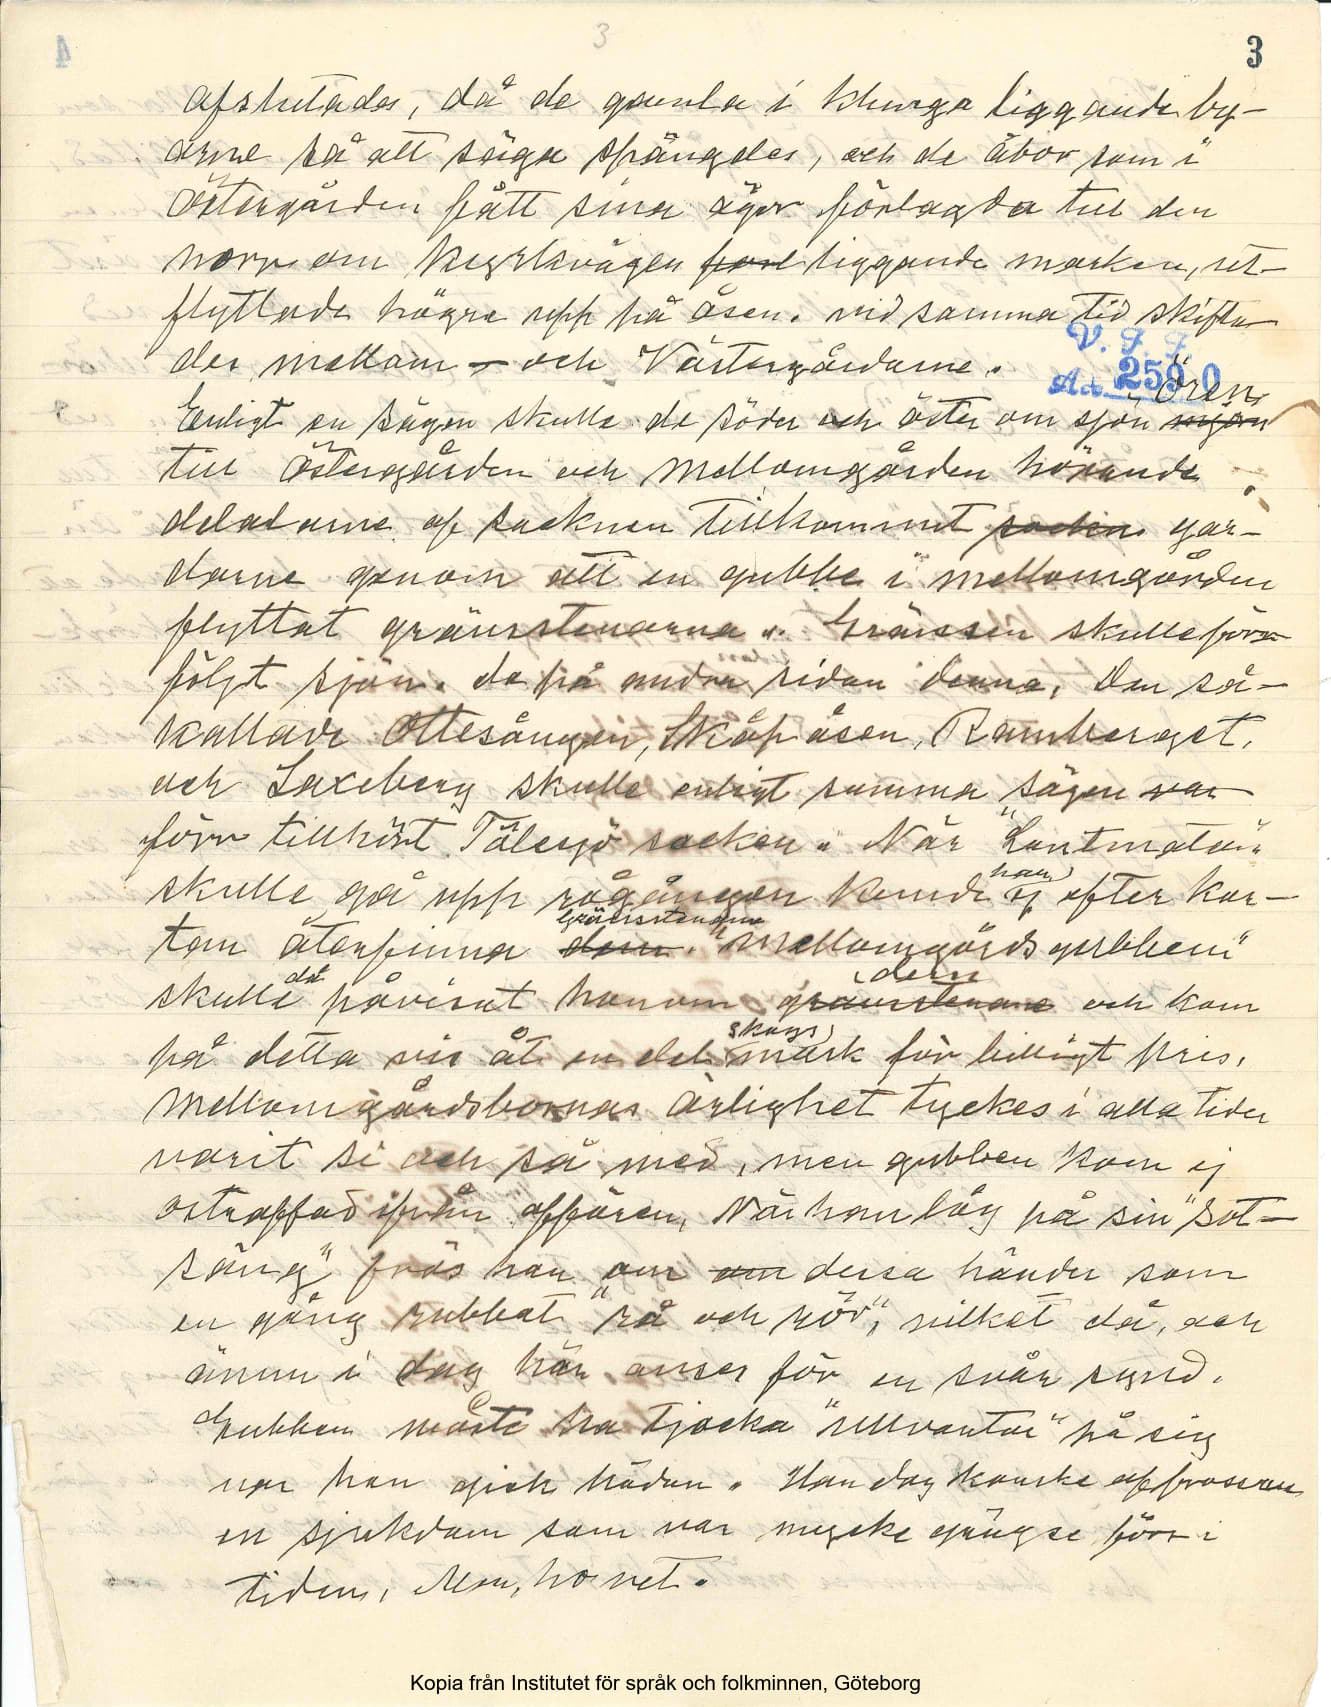 3
3
afslutades, då de gamla i klunga liggande by-
arne så att säga sprängdes, och de åbor som i
Östergården fått sina ägor förlagda till den
norr om kyrkvägen liggande marken, ut-
flyttade högre upp på åsen. vid samma tid skifta-
des mellom- och Västergårdarne.
V. F. F.
Acc. 2590
Ören
Enligt en sägen skulle de söder och öster om sjön
till Östergården och Mellomgården hörande
deladarne af socknen tillkommit socken går-
darne genom att en gubbe i mellomgården
flyttat gränsstenarna". Gränsen skulle förr
följt sjön. de på andra sidan denna, den så-
kallade Ottesängen, Skåpåsen, Ramberget,
och Laxeberg skulle enligt samma sägen var
förr tillhört Tölesjö socken." När "Lantmätar"
skulle gå upp rågången kunde han ej efter kar-
tan återfinna dem gränsstenarna. "Mellomgårdsgubben"
skulle då påvisat honom gränsstenarne dem och kom
på detta vis åt en del skogsmark för billigt pris.
Mellomgårdsbornas ärlighet tyckes i alla tider
varit si och så med, men gubben kom ej
ostraffad ifrån affären, När han låg på sin "sot-
säng" frös han om om dessa händer som
en gång rubbat "rå och rör", vilket då, och
ännu i dag här anses för en svår synd.
Gubben måste ha tjocka "ullvantar" på sig
när han gick hädan. Han dog kanske af frossan
en sjukdom som var mycke gängse förr i
tiden, Men, ho vet.
Kopia från Institutet för språk och folkminnen, Göteborg